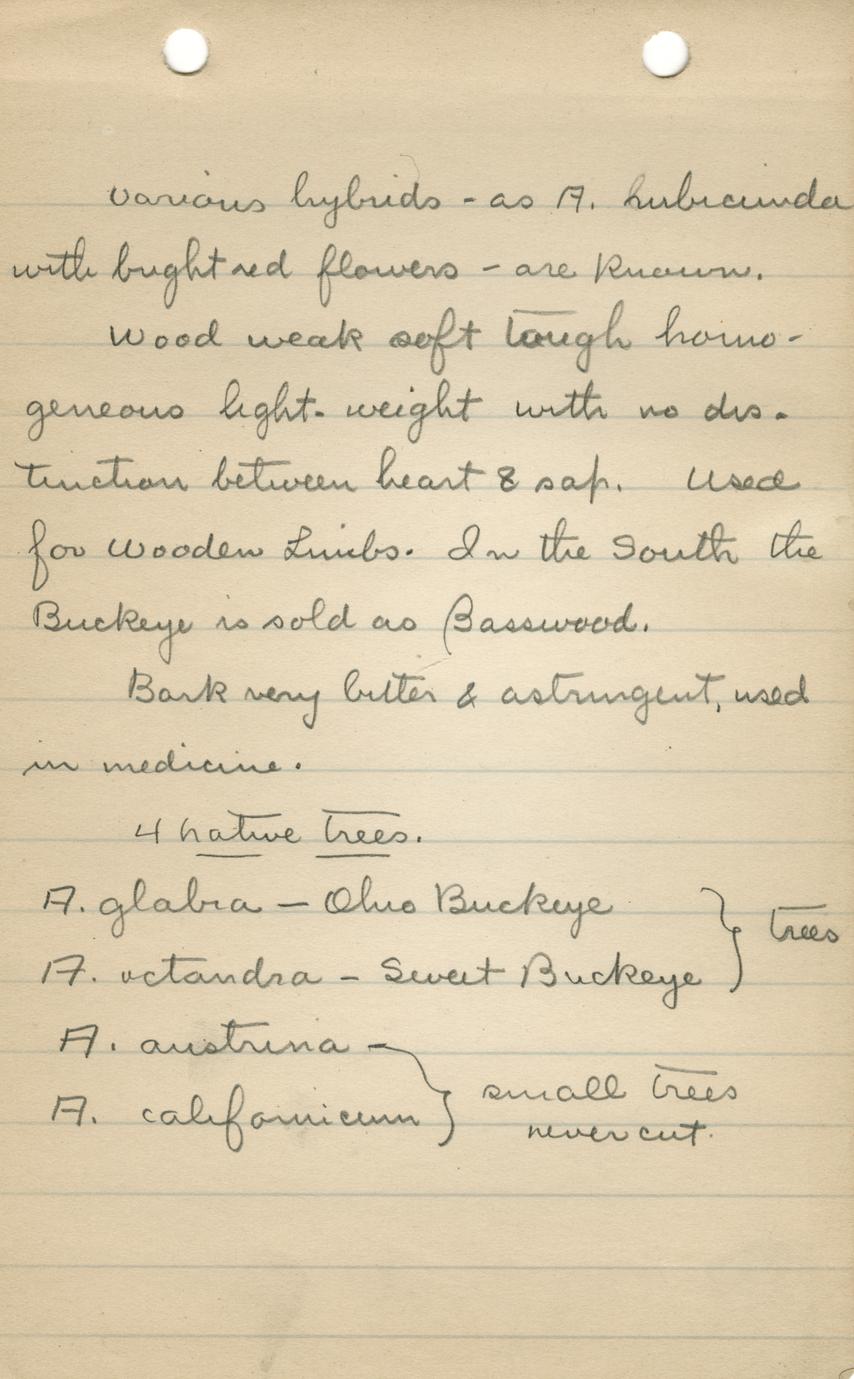 various hybrids - as A. rubicunda
with bright red flowers - are known.
Wood weak soft tough homo-
geneous light-weight with no dis-
tinction between heart & sap. Used
for wooden Limbs. In the South the
Buckeye is sold as Basswood.
Bark very bitter & astringent, used
in medicine.
4 native trees.
A. glabra - Ohio Buckeye
A. octandra - Sweet Buckeye } trees
A. austrina -
A. californicum } small trees
never cut.